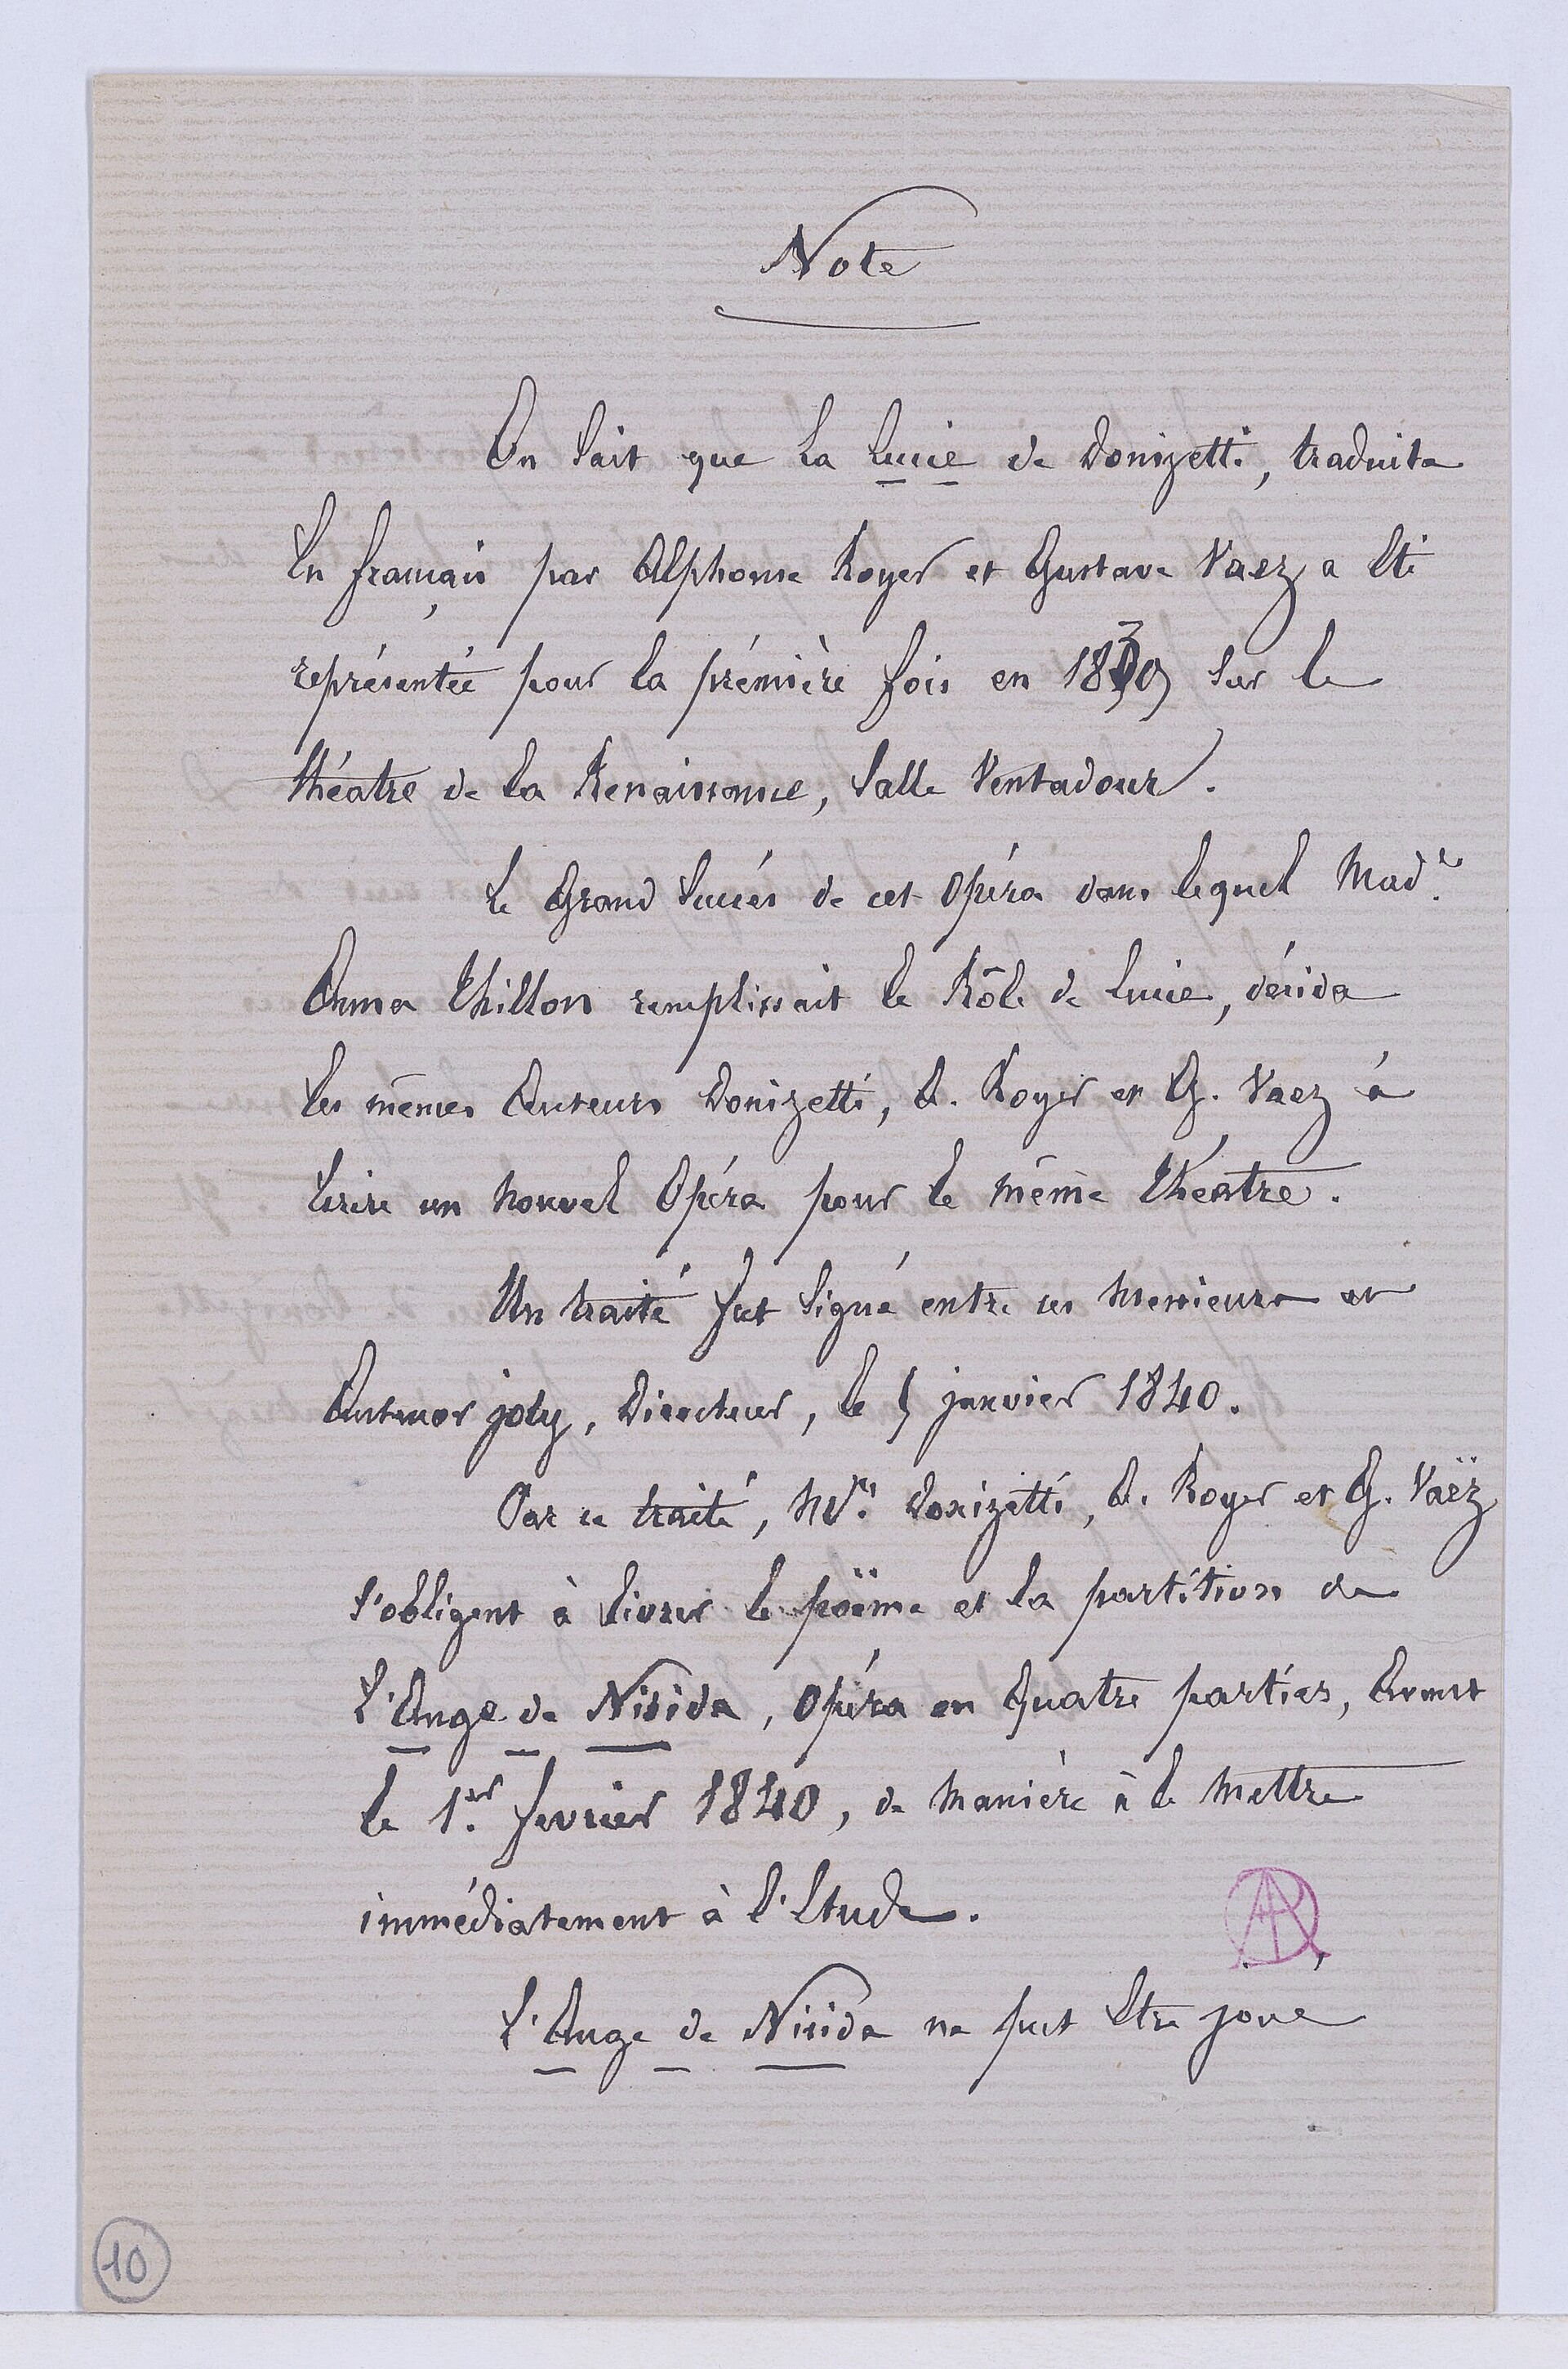 Note
On Sait que La Lucie de Donizetti, traduite
En français par Alphonse Royer et Gustave Vaez a Eté
représentée pour La prémière fois en 1839 Sur le
théatre de La Renaissance, Salle Ventadour.
Le Grand Succés de cet Opéra dans lequel Mad.e
Anna Thillon remplissait le Rôle de Lucie, décida
Les mêmes Auteurs Donizetti, A. Royer et G. Vaez à
Ecrire un nouvel Opéra pour le même Théatre.
Un traité fut Signé entre ces Messieurs et
Antenor joly, Directeur, le 5 janvier 1840.
Par ce traité, M.rs Donizetti, A. Royer et G. Vaëz
S'obligent à Livrer le poëme et la partition de
L'Ange de Nisida, Opéra en Quatre parties, Avant
le 1.er fevrier 1840, de Manière à le Mettre
immédiatement à l'Etude.
L'Ange de Nisida ne put Etre joué
10